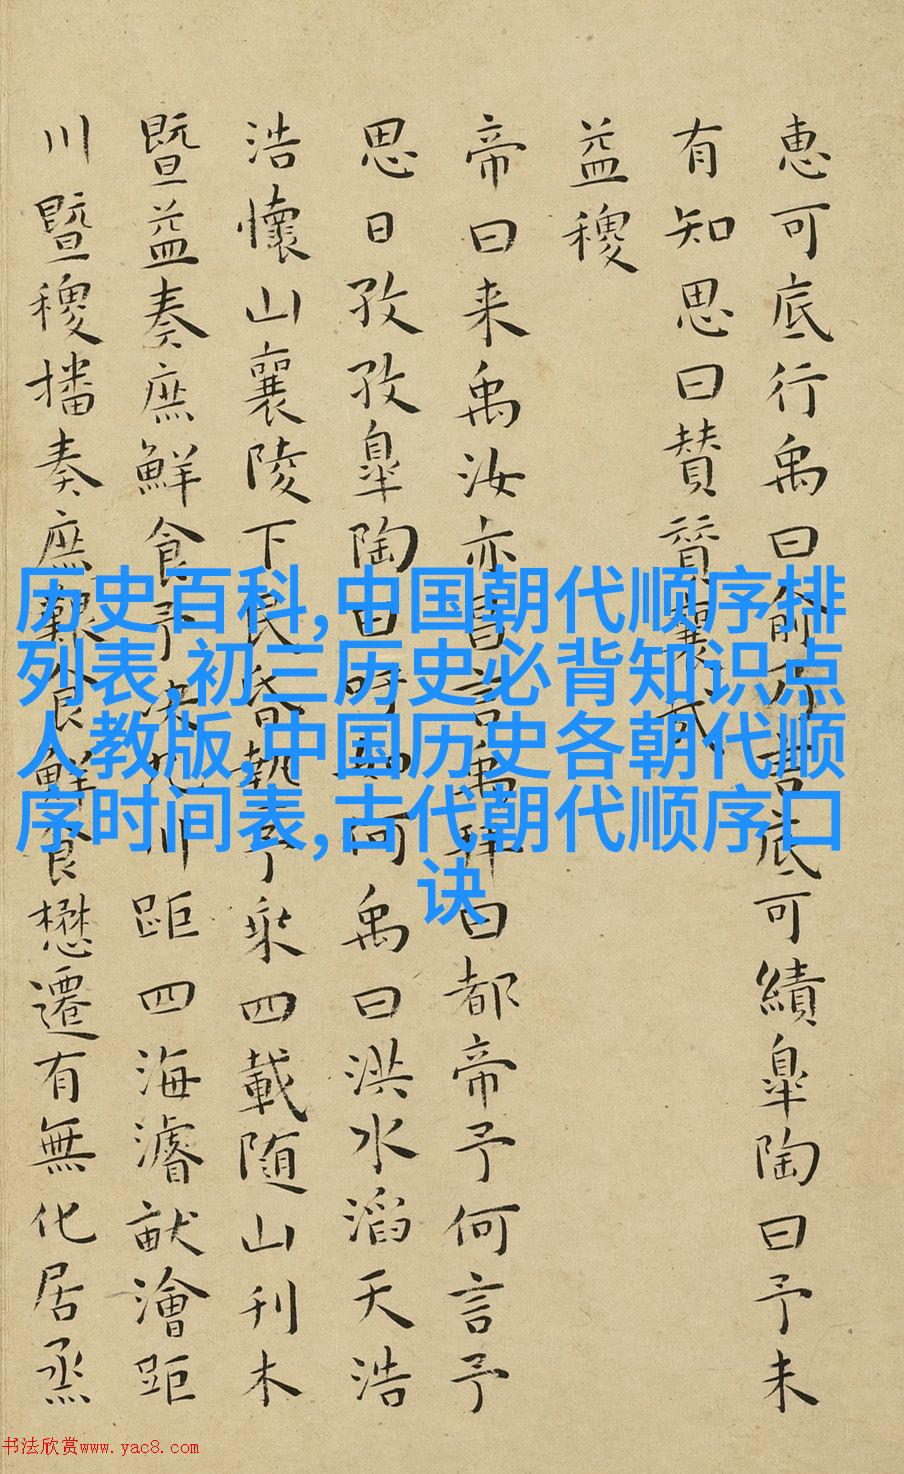 惠可底行禹曰俞乃言底可績皐陶曰予未
有知思曰賛賛襄哉
益稷
帝曰来禹汝亦昌言禹拜曰都帝予何言予
思日孜孜皐陶曰吁如何禹曰洪水滔天浩
浩懷山襄陵下民昏墊予乘四載随山刊木
暨益奏庶鮮食予決九川距四海濬畎澮距
川暨稷播奏庶艱食鮮食懋遷有無化居烝
历史百科,中国朝代顺序排
列表,初三历史必背知识点
人教版,中国历史各朝代顺
序时间表,古代朝代顺序口
诀
书法欣赏www.yac8.com